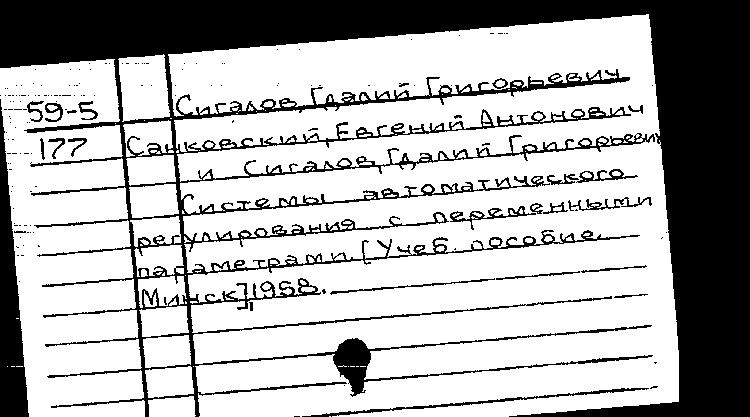 59-5 Сигалов, Гдалий Григорьевич
177 Санковский, Евгений Антонович
и Сигалов, Гдалий Григорьевич
Системы автоматического
регулирования с переменными
параметрами. [Учеб. пособие.
Минск], 1958.